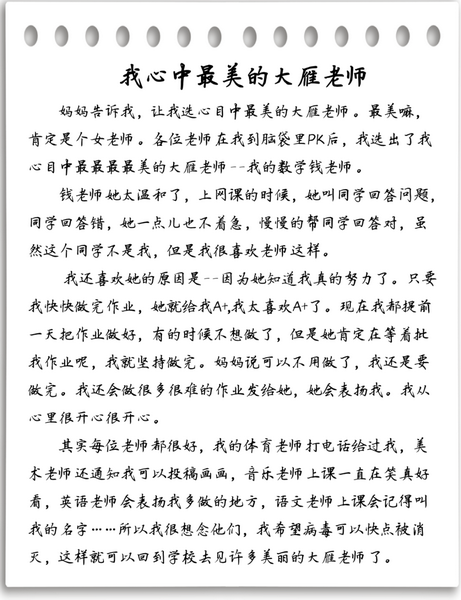 我心中最美的大雁老师
妈妈告诉我，让我选心目中最美的大雁老师。最美嘛，
肯定是个女老师。各位老师在我到脑袋里PK后，我选出了我
心目中最最最最美的大雁老师--我的数学钱老师。
钱老师她太温和了，上网课的时候，她叫同学回答问题，
同学回答错，她一点儿也不着急，慢慢的帮同学回答对，虽
然这个同学不是我，但是我很喜欢老师这样。
我还喜欢她的原因是--因为她知道我真的努力了。只要
我快快做完作业，她就给我A+,我太喜欢A+了。现在我都提前
一天把作业做好，有的时候不想做了，但是她肯定在等着批
我作业呢，我就坚持做完。妈妈说可以不用做了，我还是要
做完。我还会做很多很难的作业发给她，她会表扬我。我从
心里很开心很开心。
其实每位老师都很好，我的体育老师打电话给过我，美
术老师还通知我可以投稿画画，音乐老师上课一直在笑真好
看，英语老师会表扬我多做的地方，语文老师上课会记得叫
我的名字……所以我很想念他们，我希望病毒可以快点被消
灭，这样就可以回到学校去见许多美丽的大雁老师了。